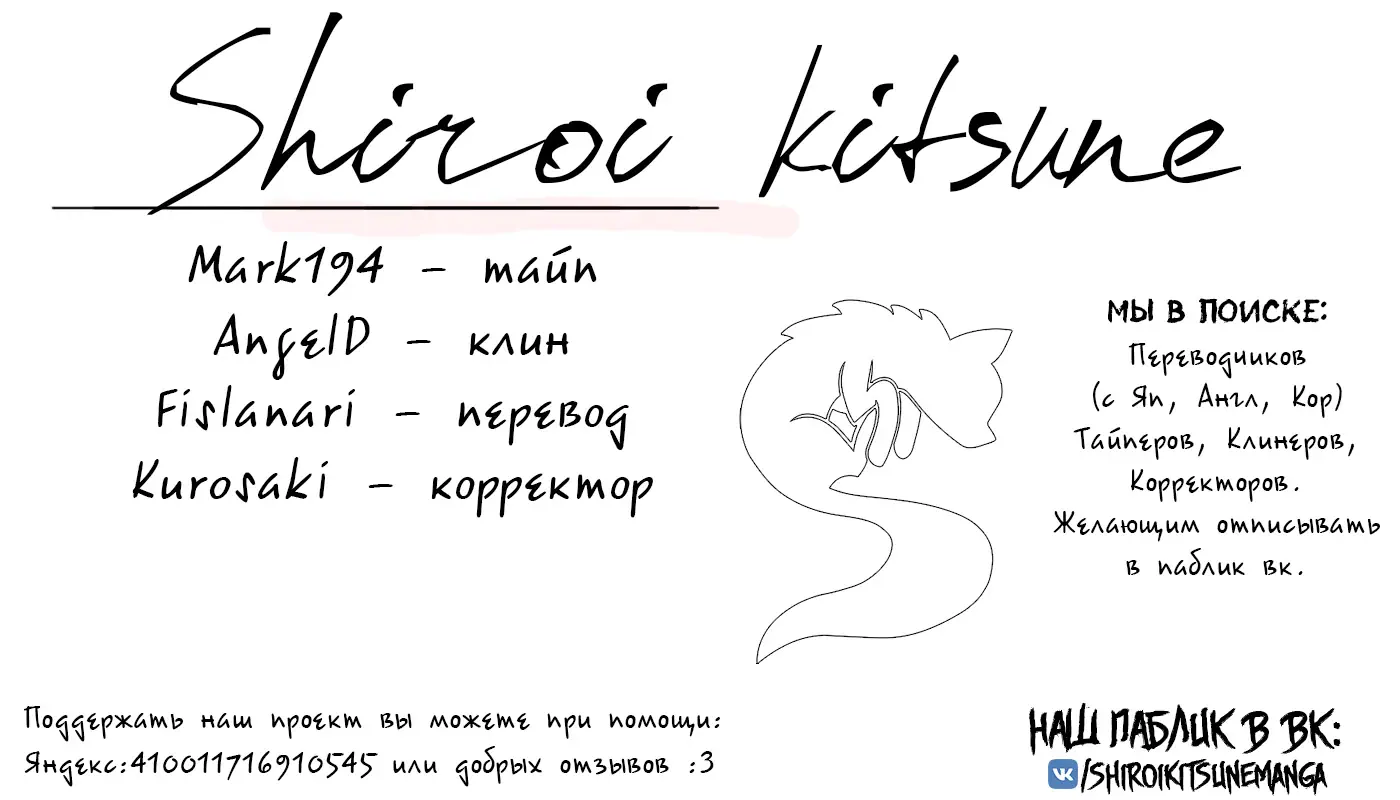 Shiroi kitsune
Mark194 – тайп
AngelD – клин
Fislanari – перевод
Kurosaki – корректор
МЫ В ПОИСКЕ:
Переводчиков
(с Яп, Англ, Кор)
Тайперов, Клинеров,
Корректоров.
Желающим отписывать
в паблик вк.
Поддержать наш проект вы можете при помощи:
Яндекс:410011716910545 или добрых отзывов :3
НАШ ПАБЛИК В ВК:
/SHIROIKITSUNEMANGA